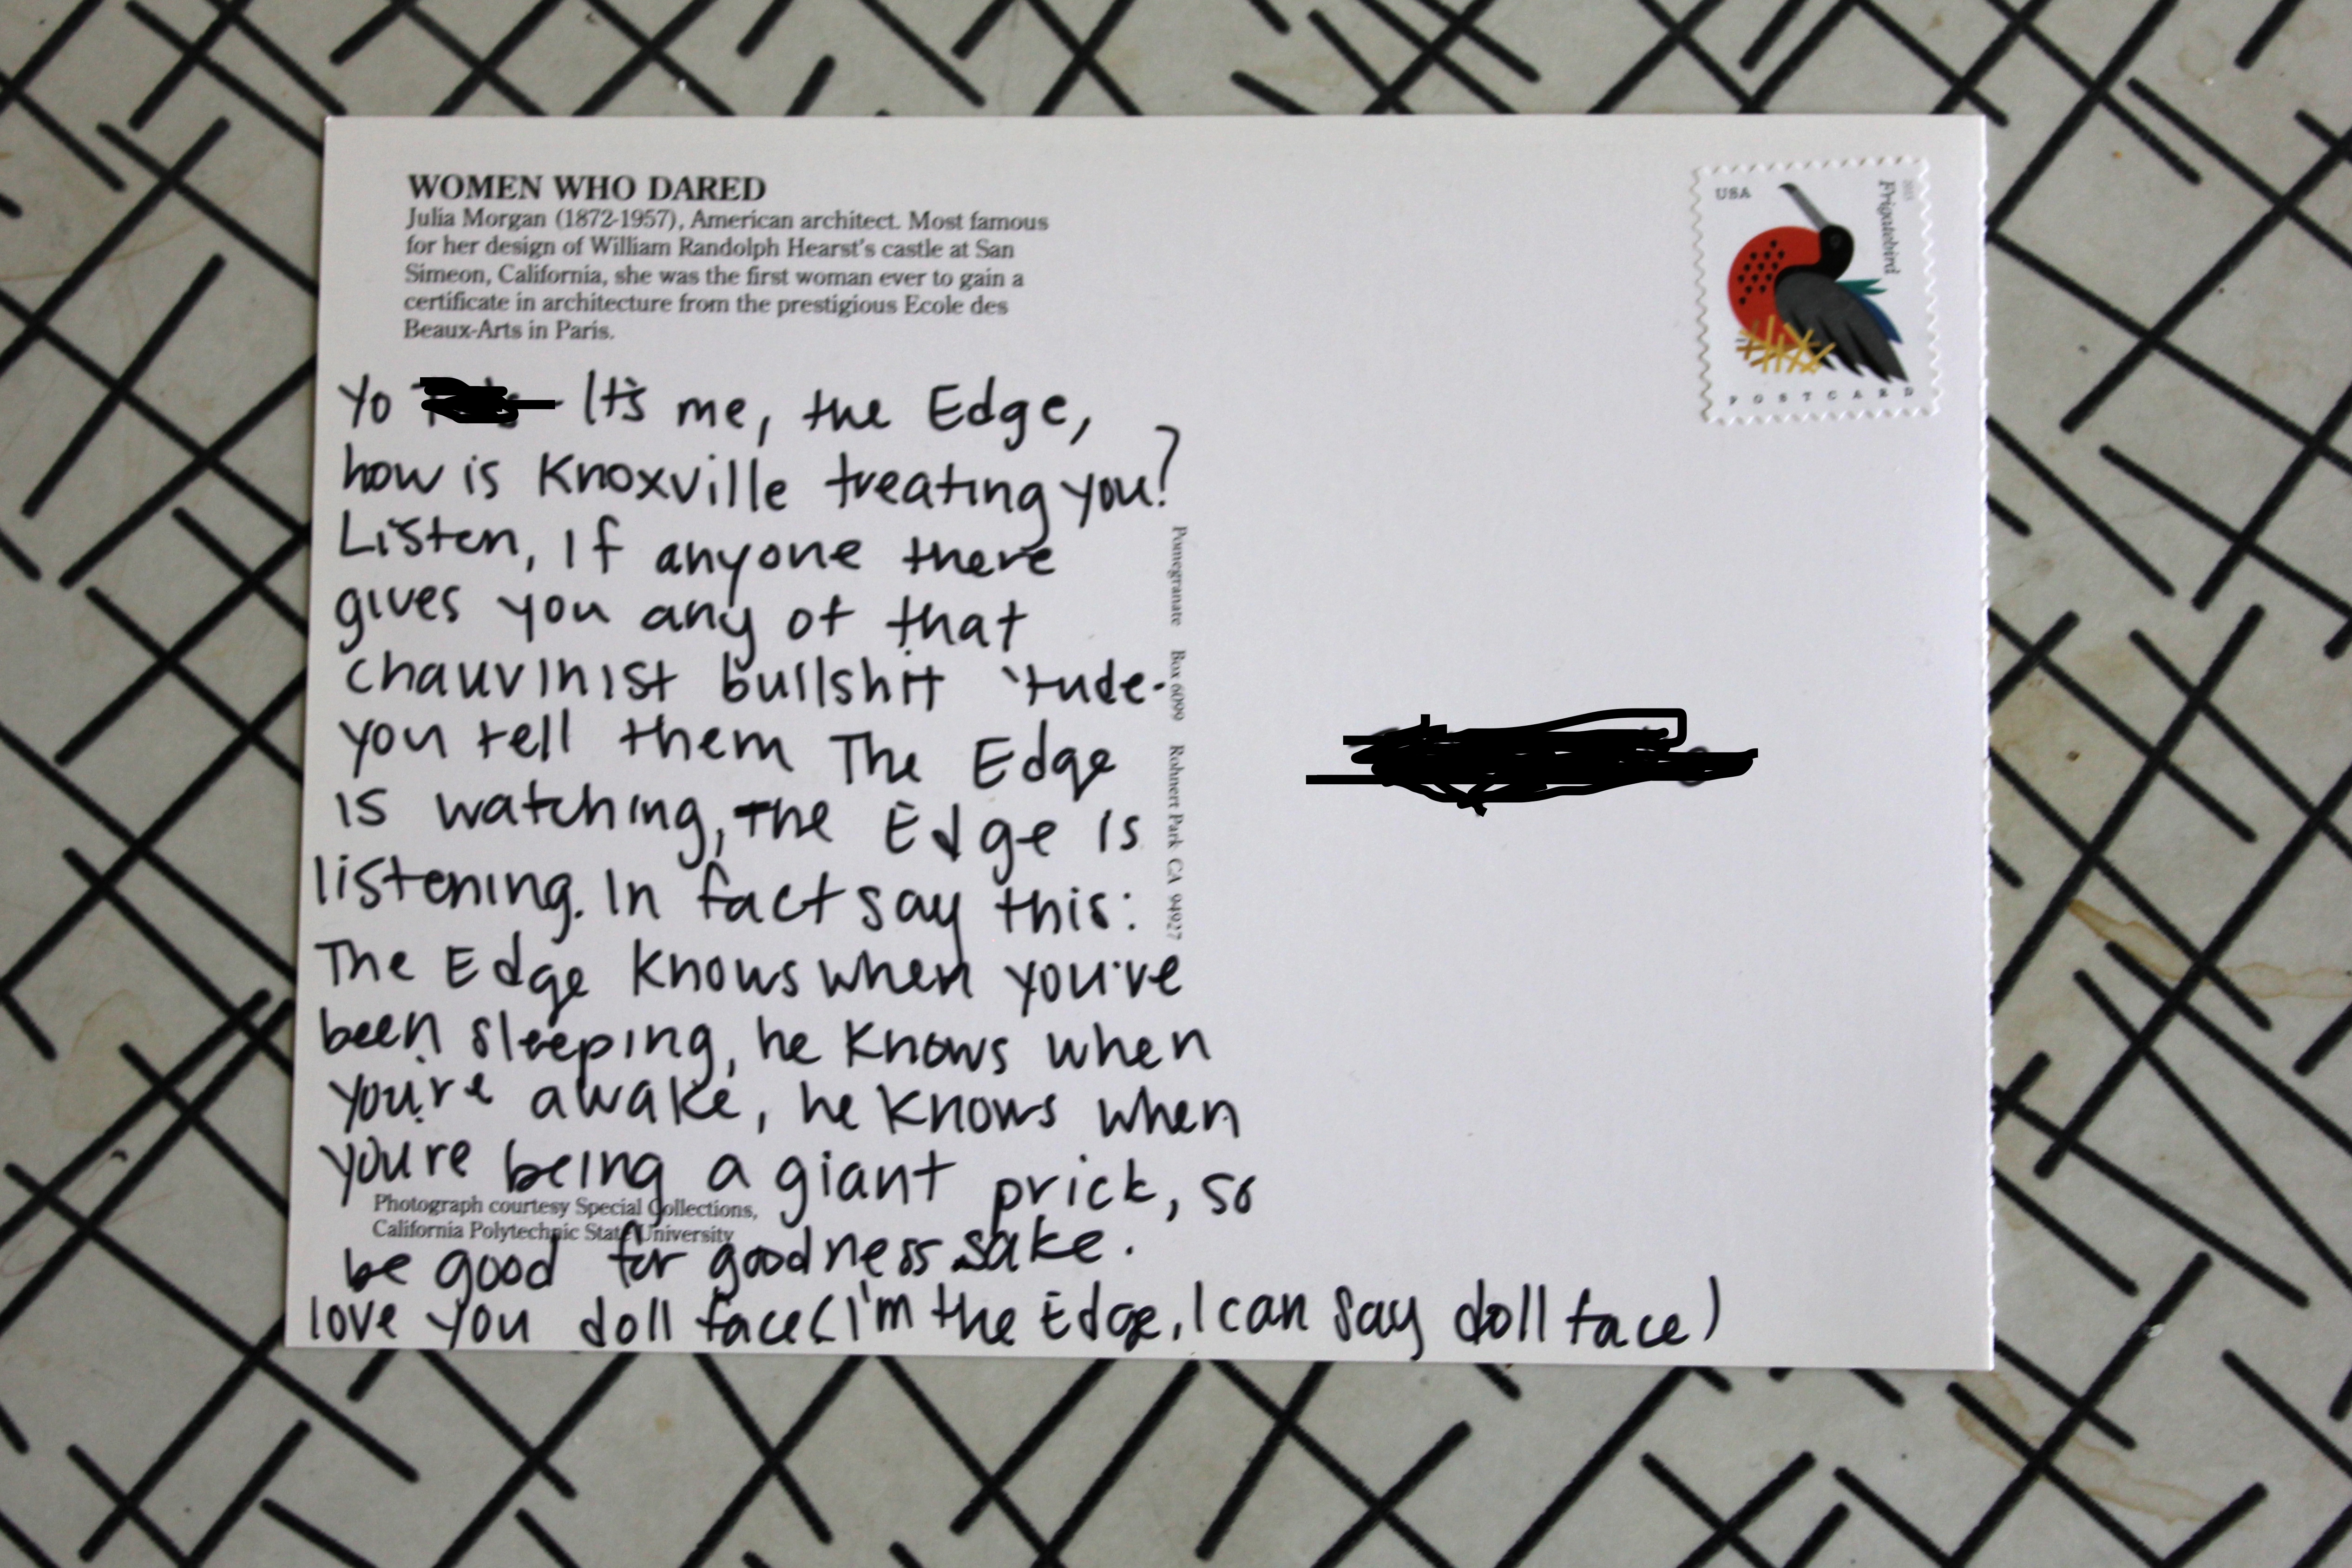 WOMEN WHO DARED
Julia Morgan (1872-1957), American architect. Most famous
for her design of William Randolph Hearst's castle at San
Simeon, California, she was the first woman ever to gain a
certificate in architecture from the prestigious Ecole des
Beaux-Arts in Paris.
USA
2015
Frigatebird
POSTCARD
Yo It's me, the Edge,
how is Knoxville treating you?
Listen, If anyone there
gives you any of that
chauvinist bullshit 'tude-
you tell them The Edge
is watching, The Edge is
listening. In fact say this:
The Edge knows when you've
been sleeping, he knows when
you're awake, he knows when
you're being a giant prick, so
be good for goodness sake.
love you doll face (I'm the Edge, I can say doll face)
Pomegranate Box 6099 Rohnert Park CA 94927
Photograph courtesy Special Collections,
California Polytechnic State University